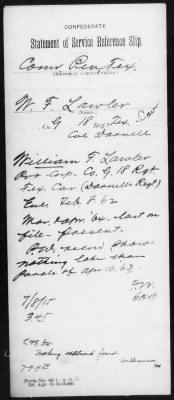 CONFEDERATE
Statement of Service Reference Slip.
Comr Pen Tex.
W. F. Lawler
(Name.)
Co. G 18 Reg't Tex. Cav
Col Darnell
William F. Lawler
Pvt - Corp. Co. G, 18 Regt
Tex. Cav. (Darnells Regt)
Enl. Feb 8 62
Mar. & Apr. '62 - last on
file - present.
P.W. record shows
nothing later than
parole of Apr 10, 63.
7/8/15
345
Nothing additional found.
Form No.